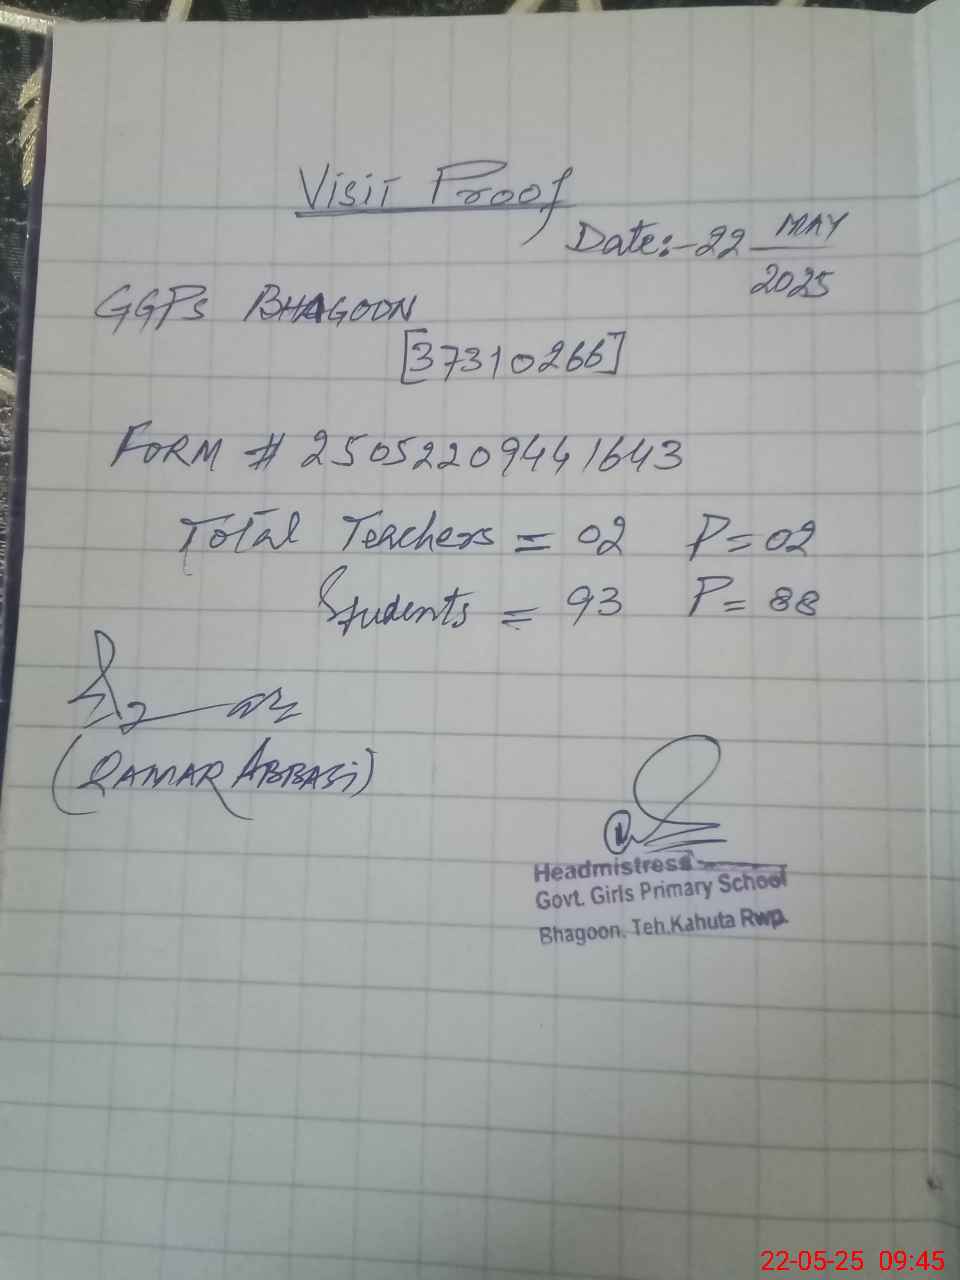 Visit Proof
Date:- 22 MAY
2025
GGPS BHAGOON
[37310266]
FORM # 25052209441643
Total Teachers = 02 P = 02
Students = 93 P = 88
(QAMAR ABBASi)
Headmistress
Govt. Girls Primary School
Bhagoon. Teh.Kahuta Rwp.
22-05-25 09:45